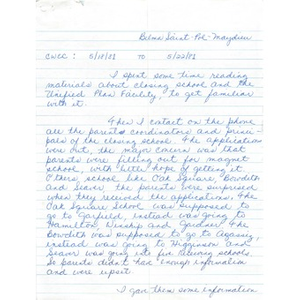 Belma Saint Pol-Maydieu
CWEC : 5/18/81 TO 5/22/81
I spent some time reading
materials about closing school and the
Unified Plan Facility, to get familiar
with it.
Then I catact on the phone
all the parents coordinators and princi-
pals of the closing school. The application
were out, the major concern was that
parents were filling out for magnet
school, with little hope of getting in.
Others school, like Oak Square, Bowdith
and Seaver, the parents were surprised
when they received the applications. The
Oak Square School was supposed to
go to Garfield, instead was going to
Hamilton, Winship and Gardner. The
Bowdith was supposed to go to Agassiz,
instead was going to Higginson and
Seaver was going into five receiving schools.
So parents didn't had enough information
and were upset.
I gave them some information